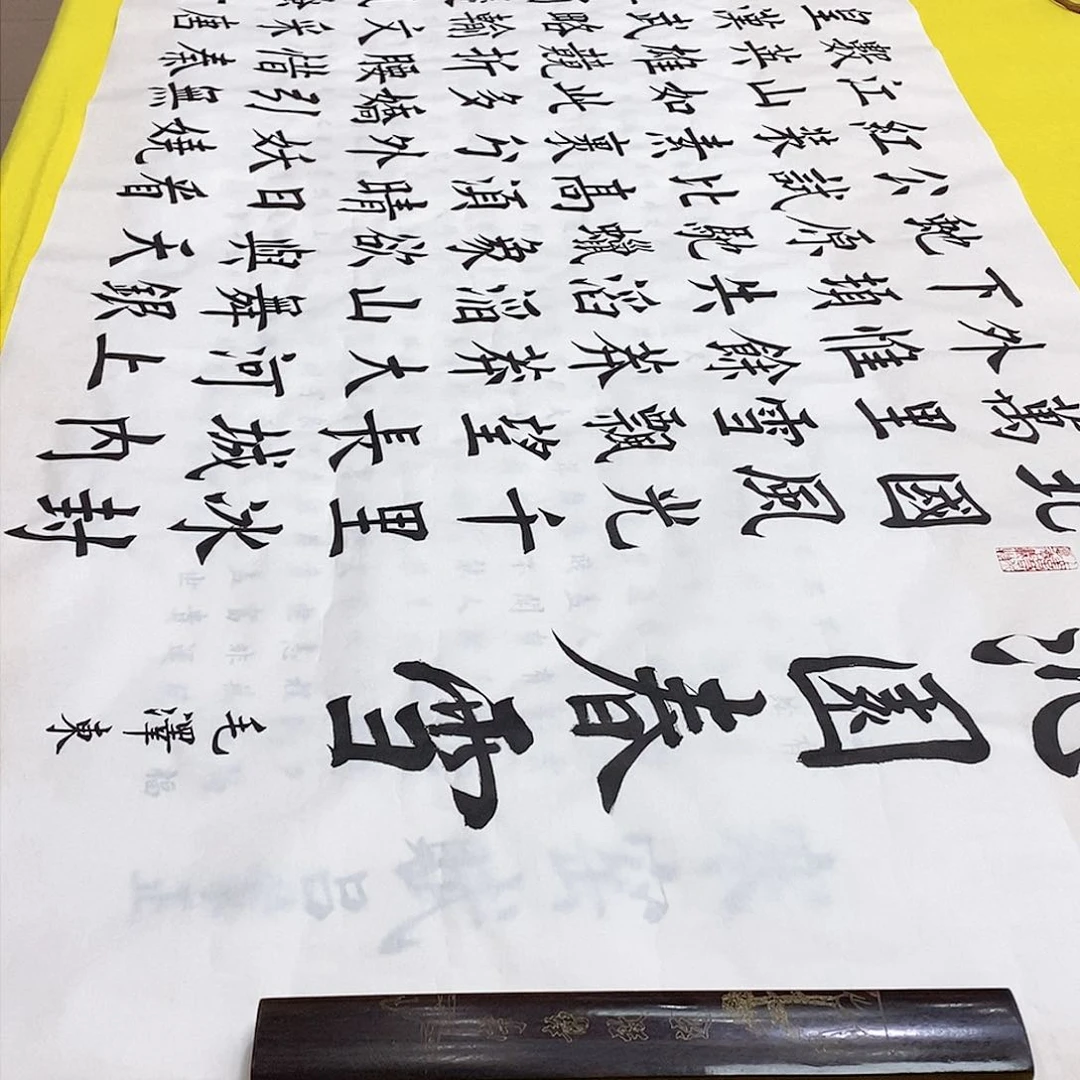 沁園春雪
毛澤東
北國風光千里冰封
萬里雪飄望長城内
外惟餘莽莽大河上
下頓失滔滔山舞銀
蛇原馳蠟象欲與天
公試比高須晴日看
紅裝素裹分外妖嬈
江山如此多嬌引無
數英雄競折腰惜秦
皇漢武略輸文采唐